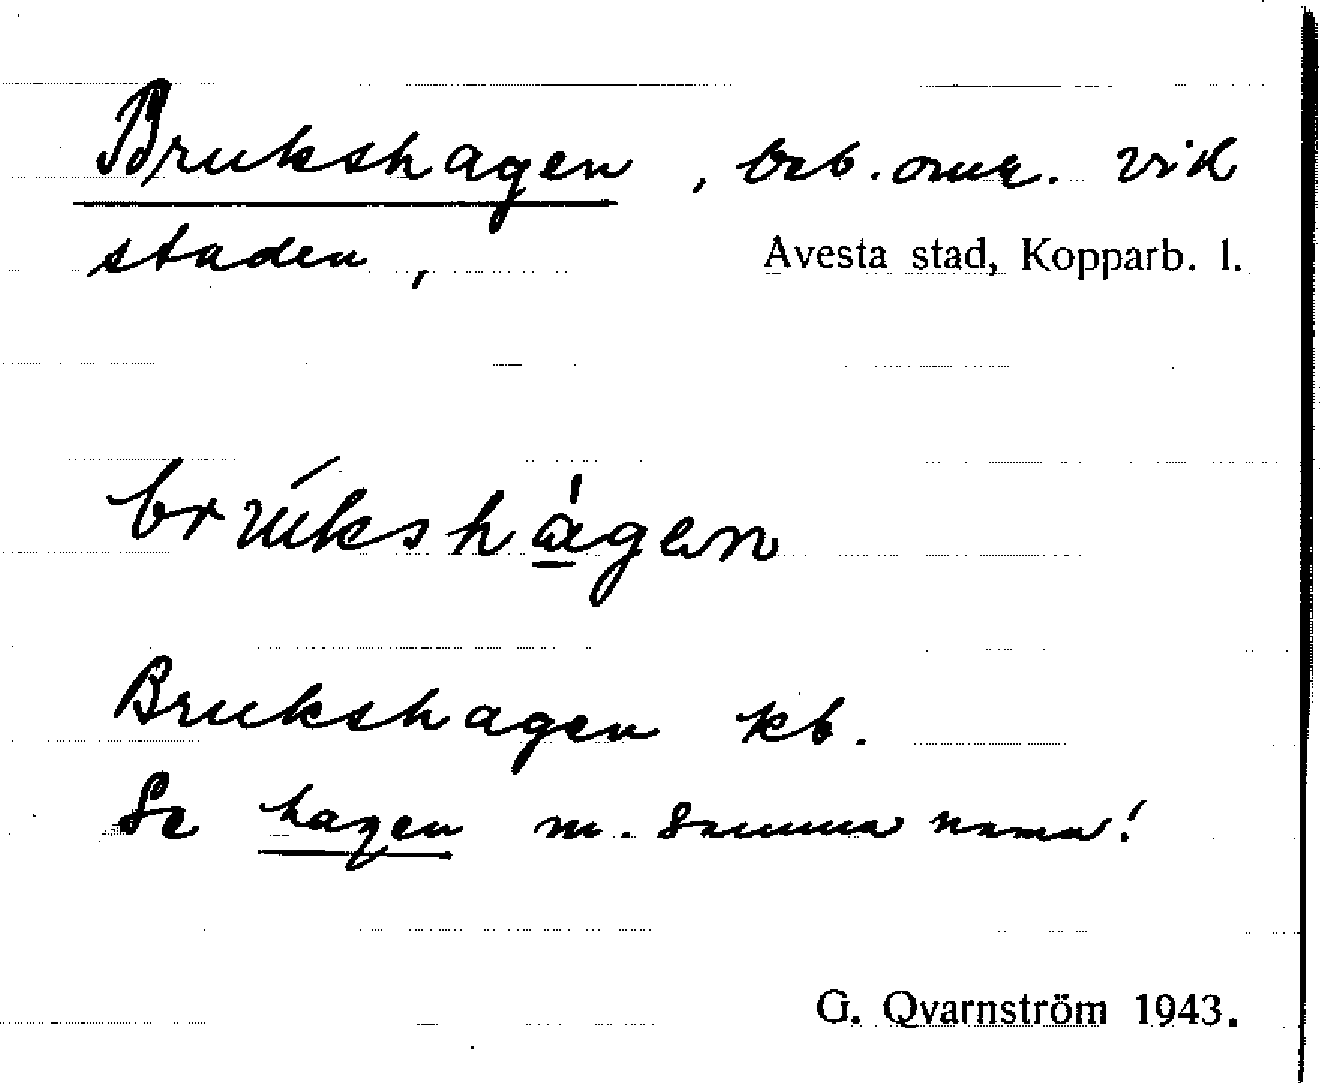 Brukshagen, beb. omr. vid
staden, Avesta stad, Kopparb. l.
brúkshàgen
Brukshagen kb.
Se hagen m. samma namn!
G. Qvarnström 1943.